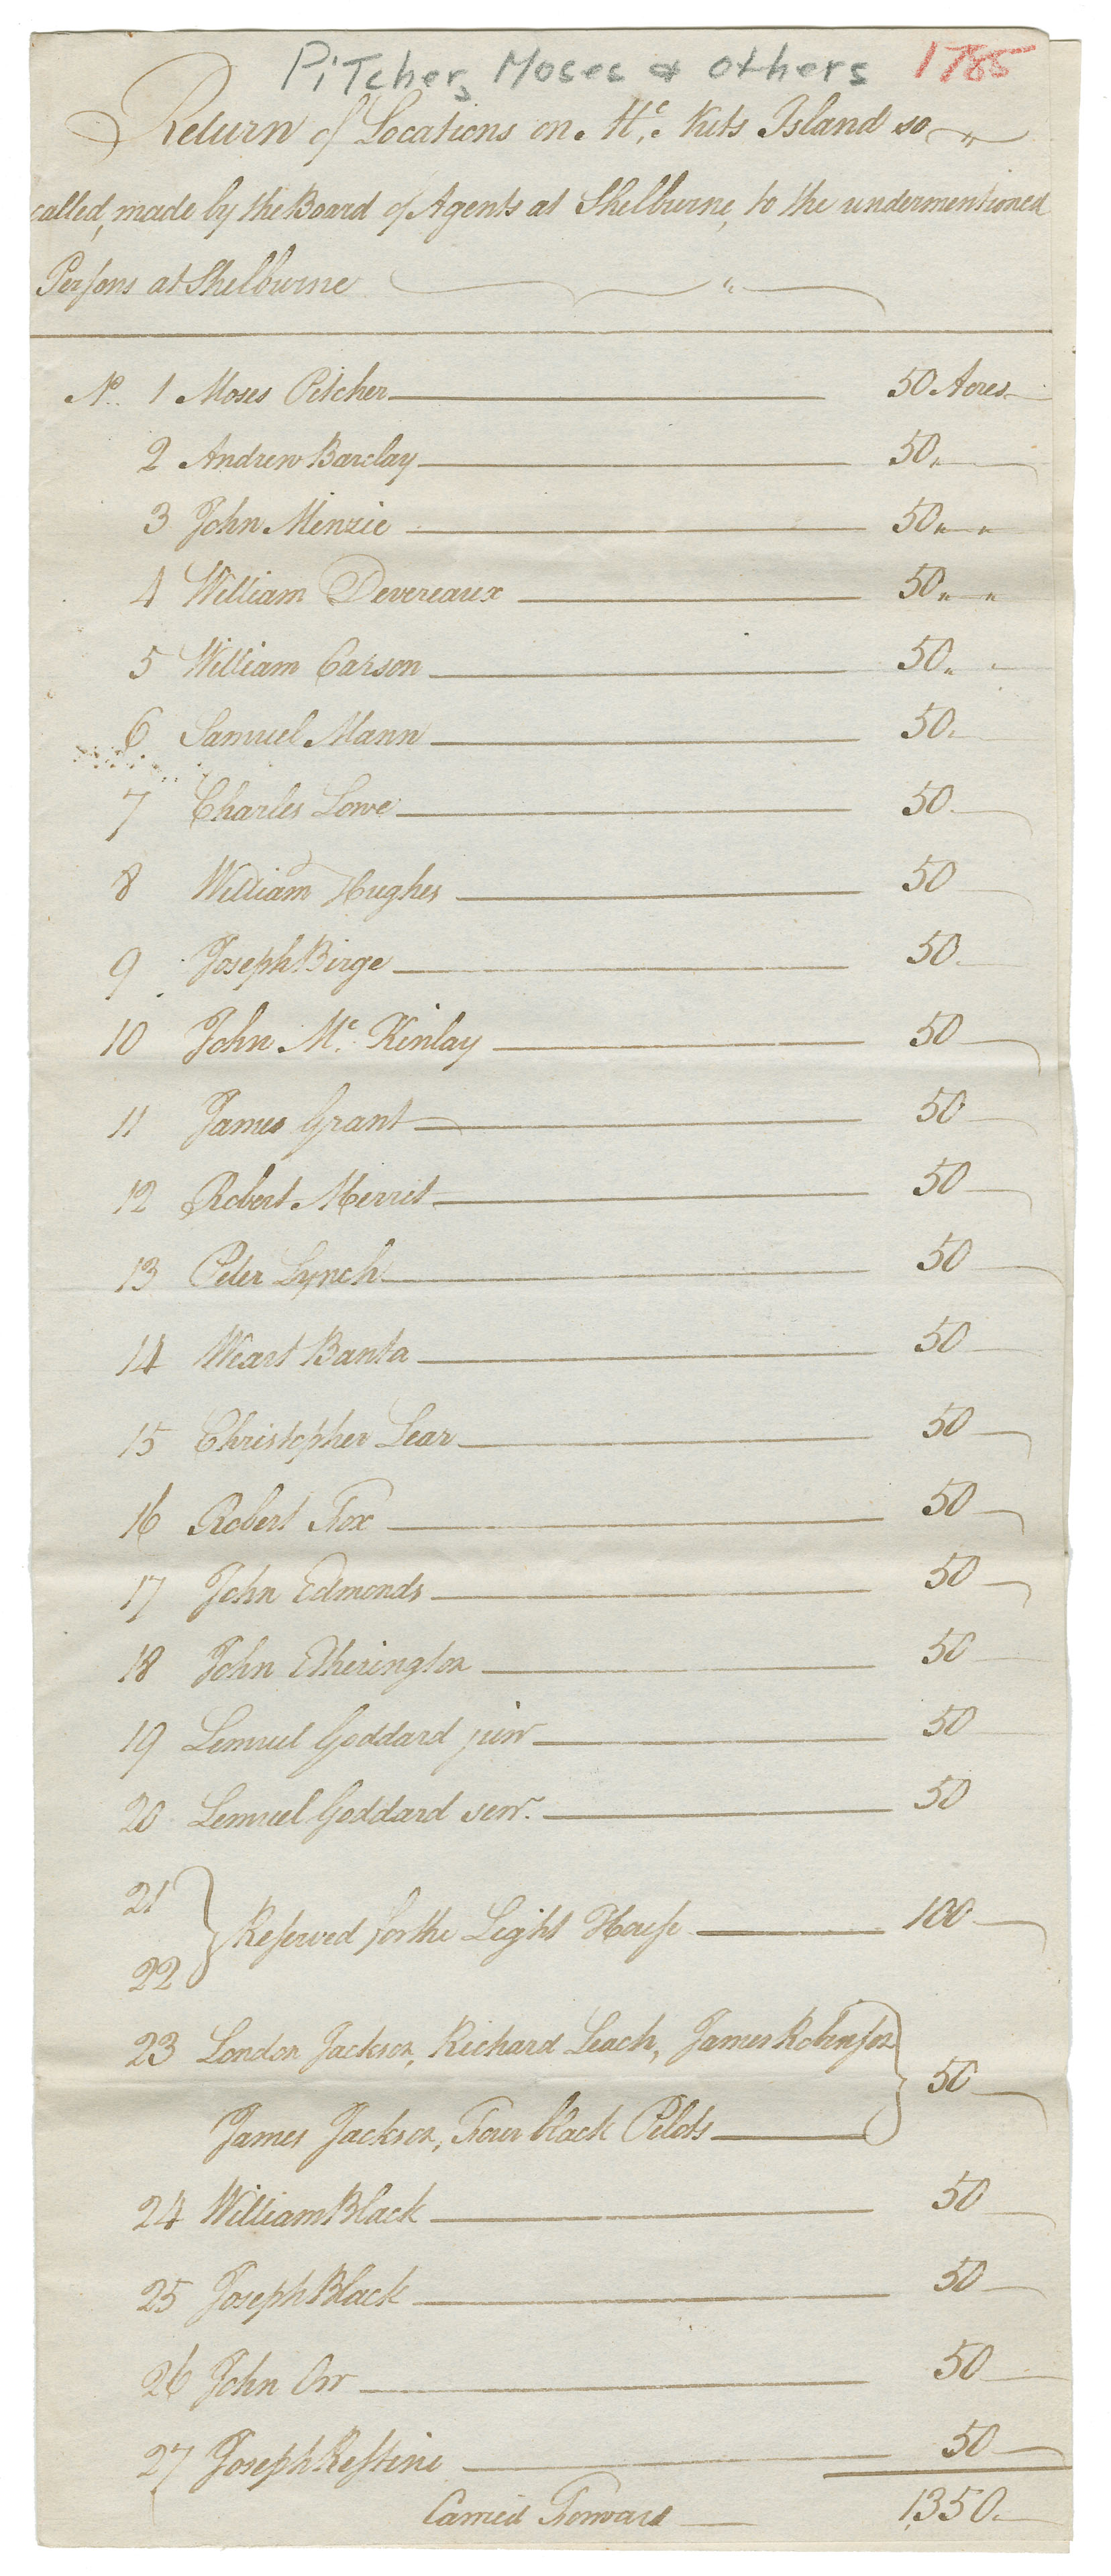 Pitcher, Moses & others 1785
Return of Locations on Mc. Nuts Island so
called, made by the Board of Agents at Shelburne, to the undermentioned
Persons at Shelburne "
No. 1 Moses Pitcher 50 Acres
2 Andrew Barclay 50 "
3 John Menzie 50 " "
4 William Devereaux 50 " "
5 William Carson 50 "
6 Samuel Mann 50
7 Charles Lowe 50
8 William Hughes 50
9 Joseph Birge 50
10 John Mc. Kinlay 50
11 James Grant 50
12 Robert Merrit 50
13 Peter Lynch 50
14 Weart Banta 50
15 Christopher Lear 50
16 Robert Fox 50
17 John Edmonds 50
18 John Etherington 50
19 Lemuel Goddard junr 50
20 Lemuel Goddard senr. 50
21
Reserved for the Light House 100
22
23 London Jackson, Richard Leach, James Robinson
50
James Jackson, Four black Pilots
24 William Black 50
25 Joseph Black 50
26 John Orr 50
27 Joseph Restine 50
Carried Forward 1350